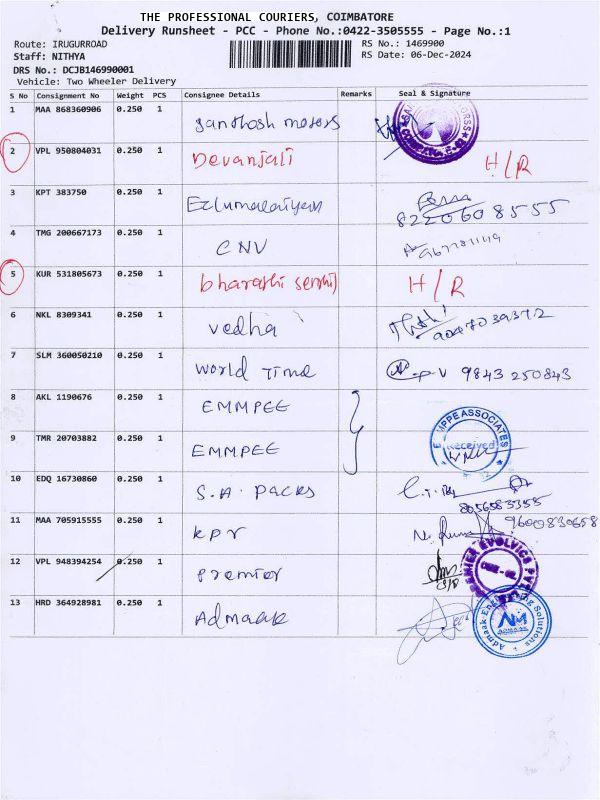 THE PROFESSIONAL COURIERS, COIMBATORE
Delivery Runsheet - PCC - Phone No.:0422-3505555 - Page No.:1
Route: IRUGURROAD
RS No.: 1469900
Staff: NITHYA
RS Date: 06-Dec-2024
DRS No.: DCJB146990001
Vehicle: Two Wheeler Delivery
S No Consignment No Weight PCS Consignee Details Remarks Seal & Signature
1 MAA 868360906 0.250 1 Santhosh motors
2 VPL 950804031 0.250 1 Devanjali H/R
3 KPT 383750 0.250 1 8220608555
4 TMG 200667173 0.250 1 CNV
5 KUR 531805673 0.250 1 bharathi H/R
6 NKL 8309341 0.250 1 vedha
7 SLM 360050210 0.250 1 World Time 9843 250843
8 AKL 1190676 0.250 1 EMMPEE
9 TMR 20703882 0.250 1 EMMPEE EMMPPE ASSOCIATES Received
10 EDQ 16730860 0.250 1 S.A. Packs 8056583355
11 MAA 705915555 0.250 1 kpr 9600830658
12 VPL 948394254 0.250 1 Premier PREMIER EVOLVICS PVT
13 HRD 364928981 0.250 1 Admaak Admaak Engineering Solutions